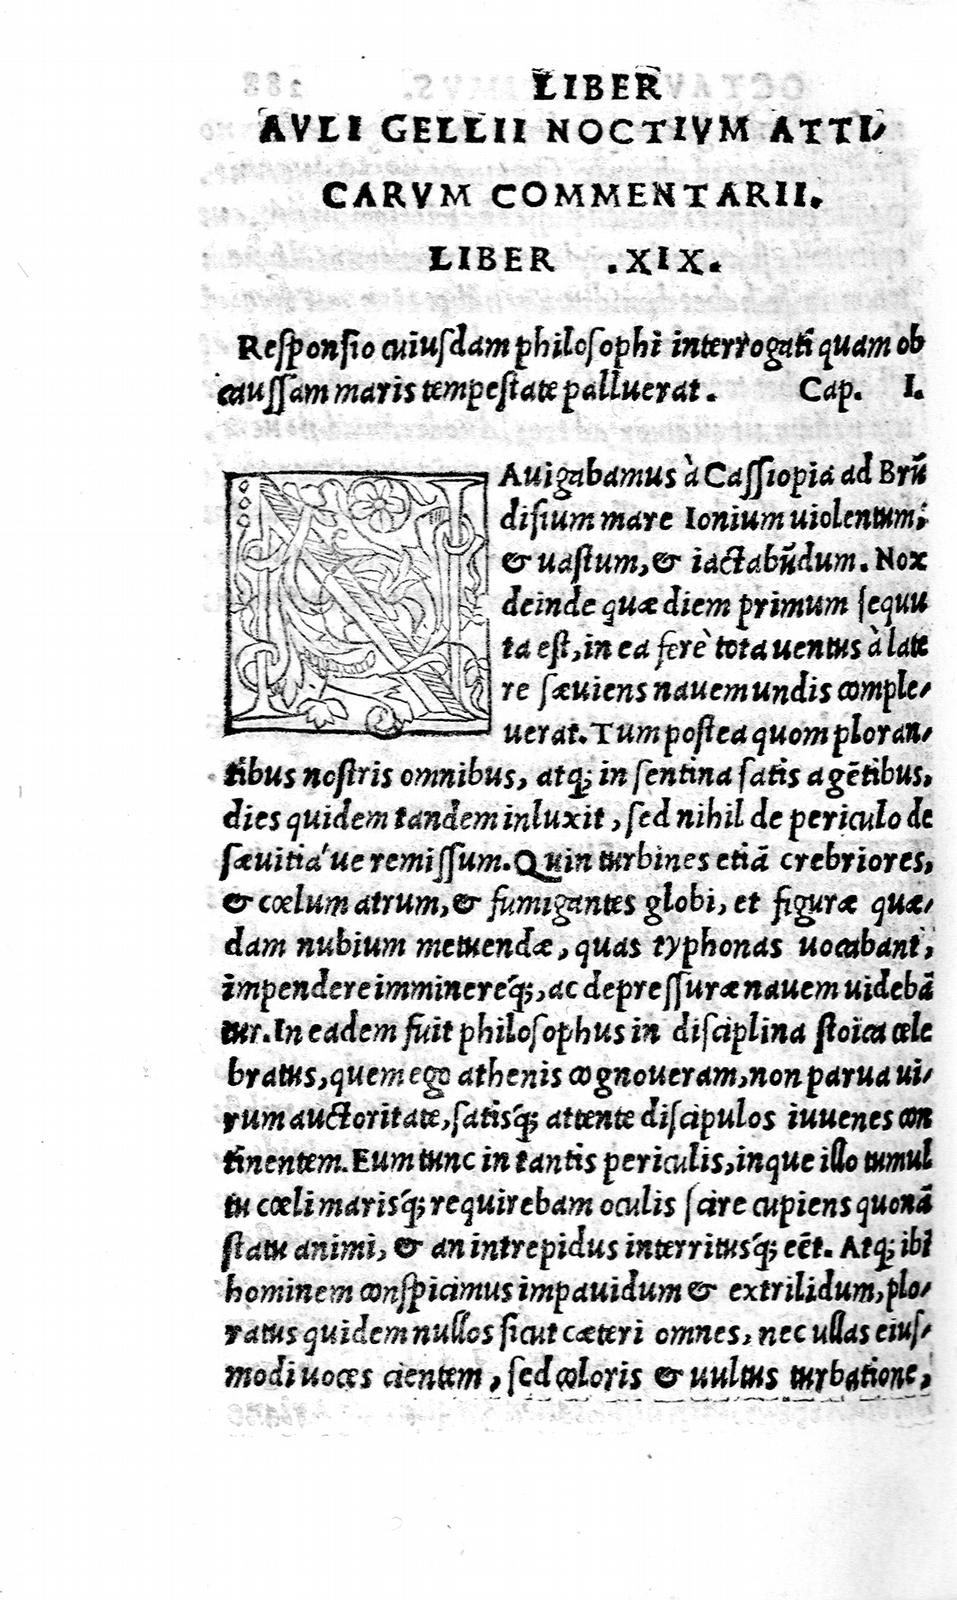 LIBER
AVLI GELLII NOCTIVM ATTI/
CARVM COMMENTARII.
LIBER .XIX.
Reſponſio cuiuſdam philoſophi interrogati quam ob
cauſſam maris tempeſtate palluerat. Cap. I.
NAuigabamus à Caſſiopia ad Brū
diſium mare Ionium uiolentum;
& uaſtum, & iactabūdum. Nox
deinde quæ diem primum ſequu
ta eſt, in ea ferè tota uentus à late
re ſæuiens nauem undis comple/
uerat. Tum poſtea quom ploran/
tibus noſtris omnibus, atq; in ſentina ſatis agētibus,
dies quidem tandem inluxit, ſed nihil de periculo de
ſæuitia'ue remiſſum. Quin turbines etiā crebriores,
& cœlum atrum, & fumigantes globi, et figuræ quæ/
dam nubium metuendæ, quas typhonas uocabant,
impendere imminereq́;, ac depreſſuræ nauem uidebā
tur. In eadem fuit philoſophus in diſciplina ſtoica cele
bratus, quem ego athenis cognoueram, non parua ui/
rum auctoritate, ſatisq́; attente diſcipulos iuuenes con
tinentem. Eum tunc in tantis periculis, inque illo tumul
tu cœli marisq́; requirebam oculis ſcire cupiens quonā
ſtatu animi, & an intrepidus interritusq́; eēt. Atq; ibi
hominem conſpicimus impauidum & extrilidum, plo/
ratus quidem nullos ſicut cæteri omnes, nec ullas eiuſ/
modi uoces cientem, ſed coloris & uultus turbatione,